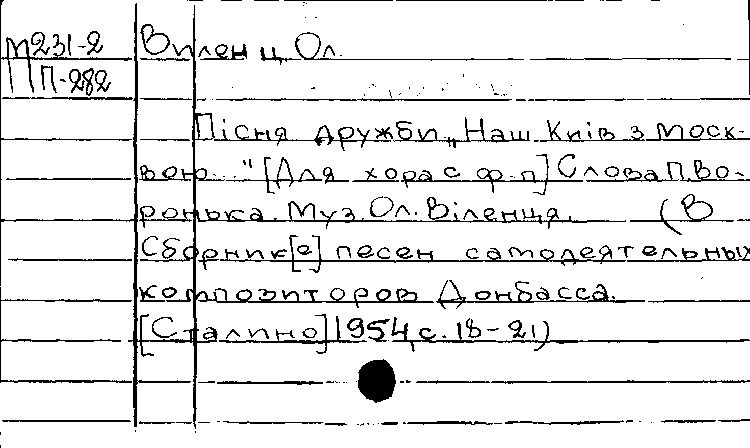 М231-2 Виленц Ол.
П-282
Пісня дружби „Наш Київ з Моск-
вою..." [Для хора с ф-п] Слова П. Во-
ронька. Муз. Ол. Віленця. (В
Сборник[е] песен самодеятельных
композиторов Донбасса.
[Сталино] 1954, с. 18-21)